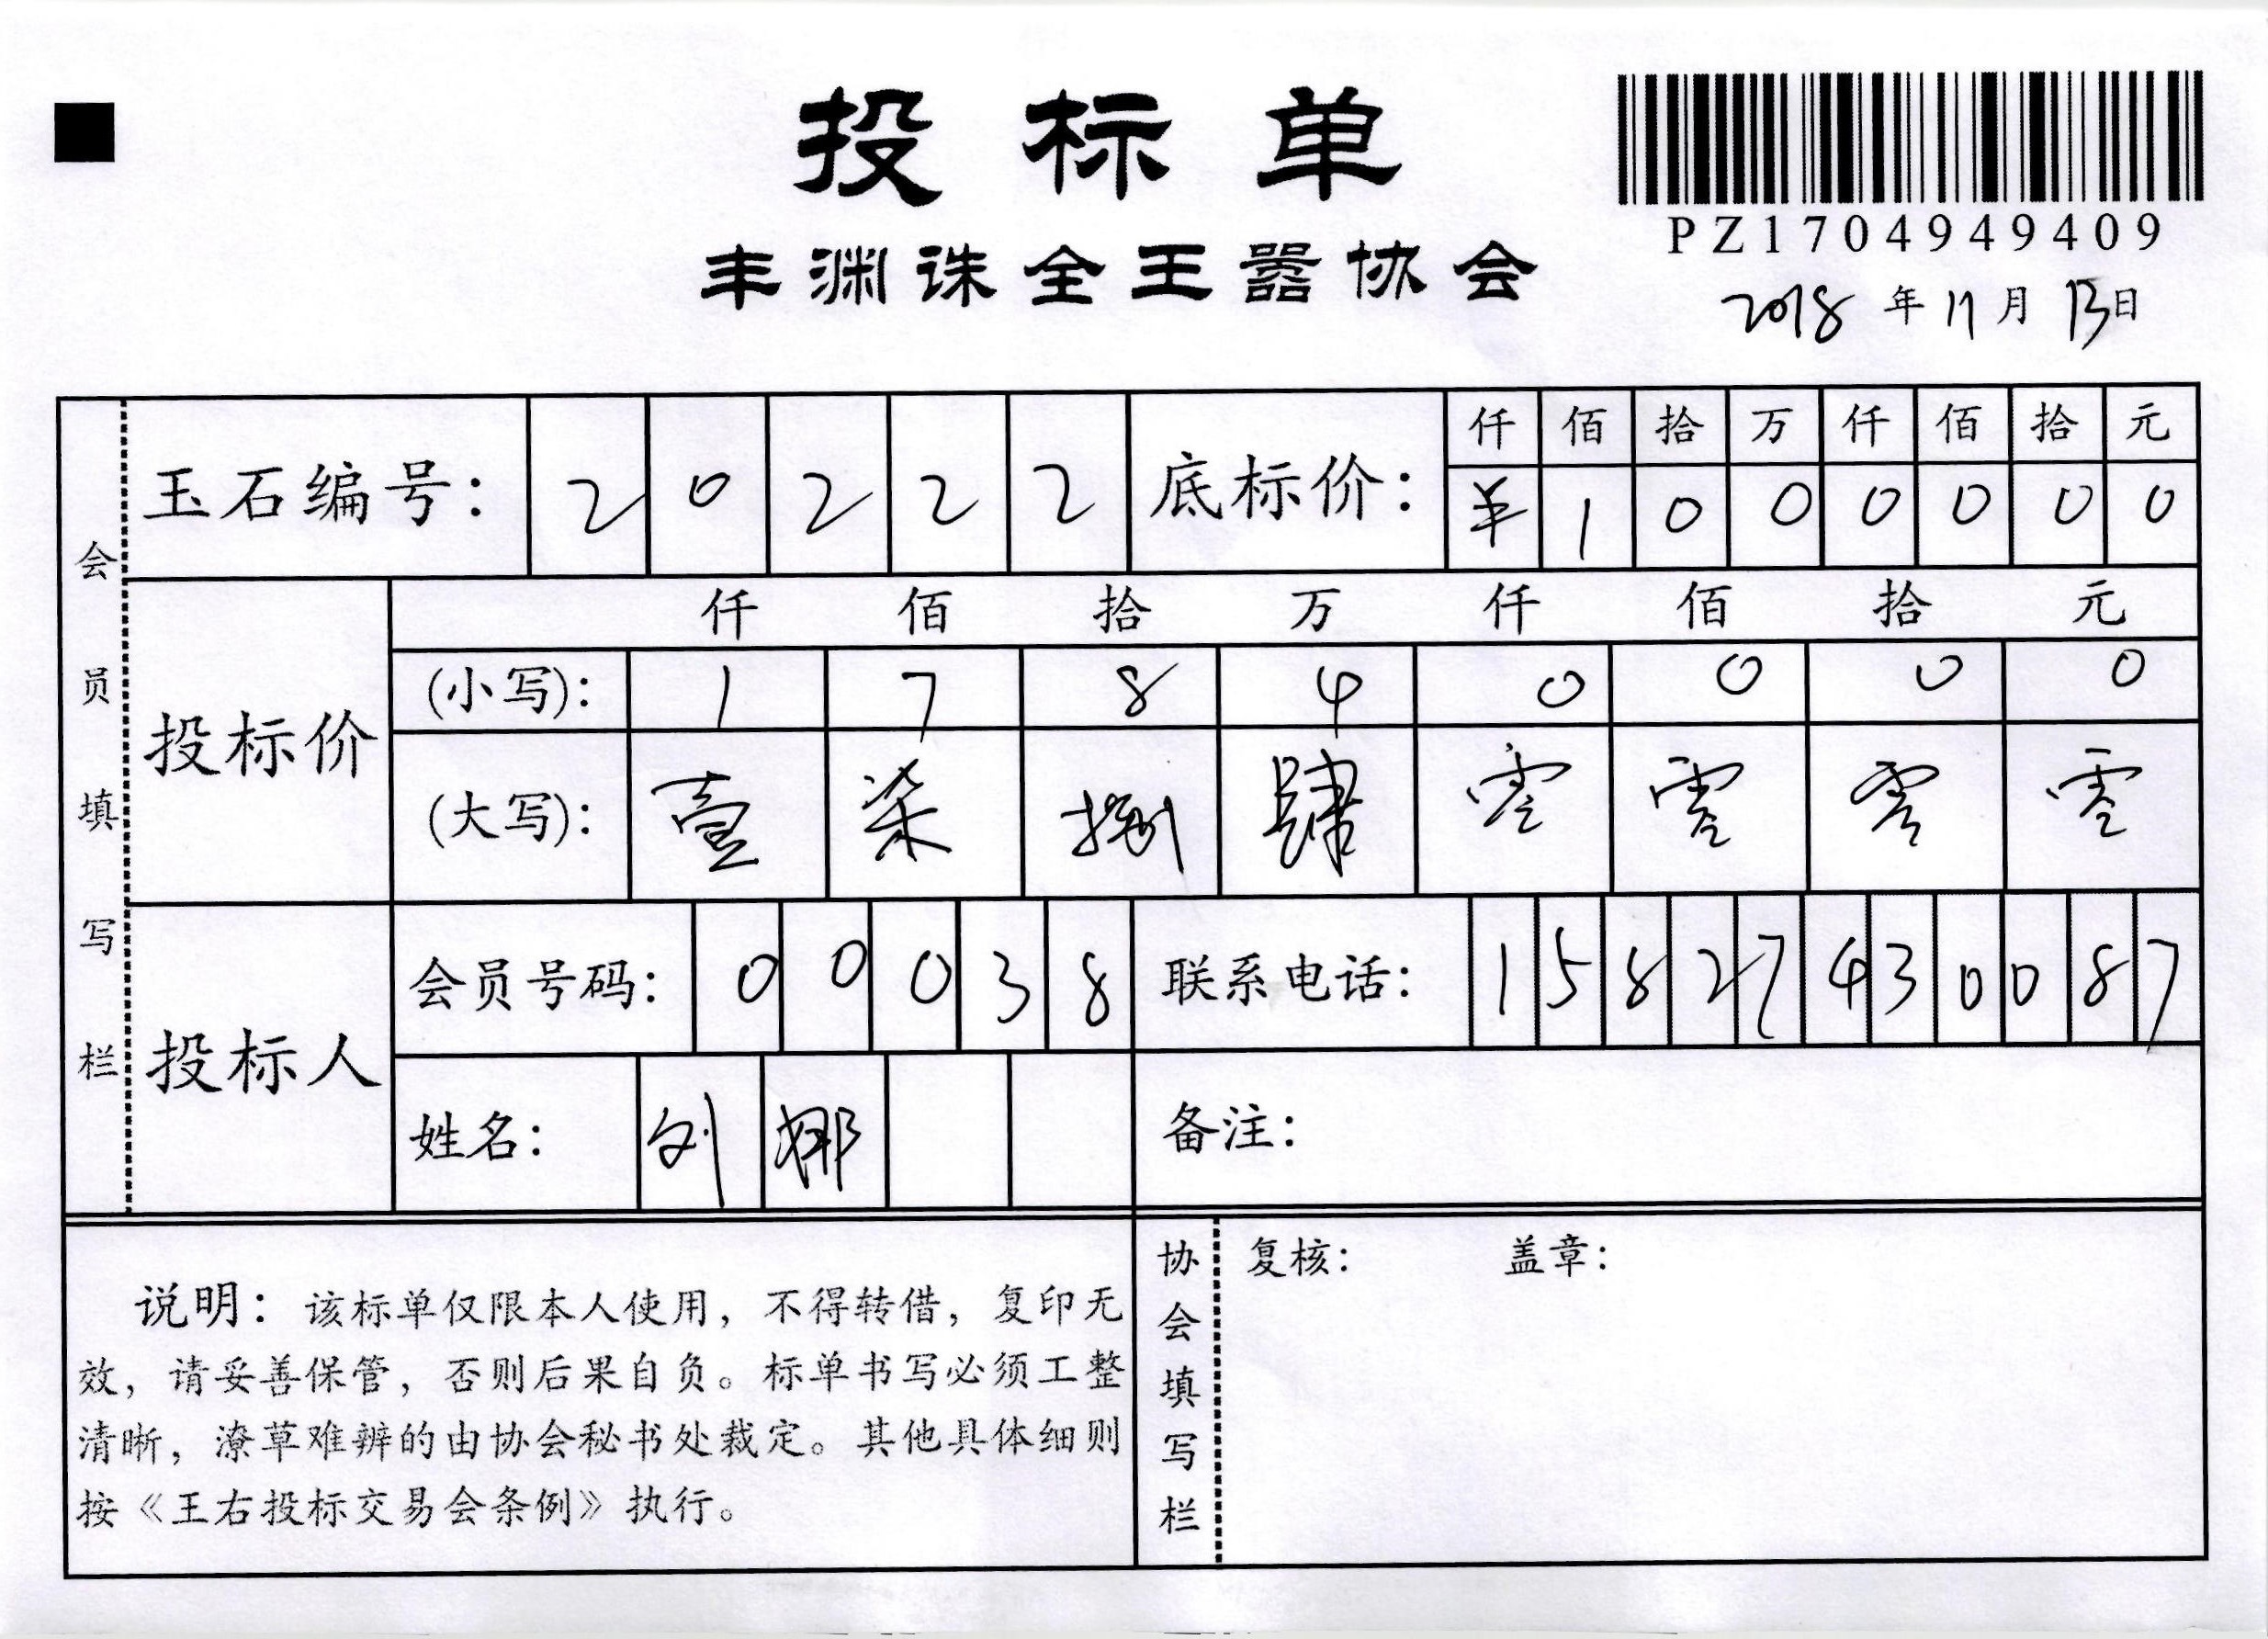 投标单
PZ1704949409
丰渊诛全王嚣协会
2018年11月13日
会员填写栏
玉石编号: 20222 底标价: 仟佰拾万仟佰拾元
¥1000000
投标价 仟佰拾万仟佰拾元
(小写): 17840000
(大写): 壹柒捌肆零零零零
投标人 会员号码: 00038 联系电话: 15827430087
姓名: 刘娜 备注:
说明: 该标单仅限本人使用, 不得转借, 复印无
效, 请妥善保管, 否则后果自负。标单书写必须工整
清晰, 潦草难辨的由协会秘书处裁定。其他具体细则
按《王右投标交易会条例》执行。
协会填写栏 复核: 盖章: